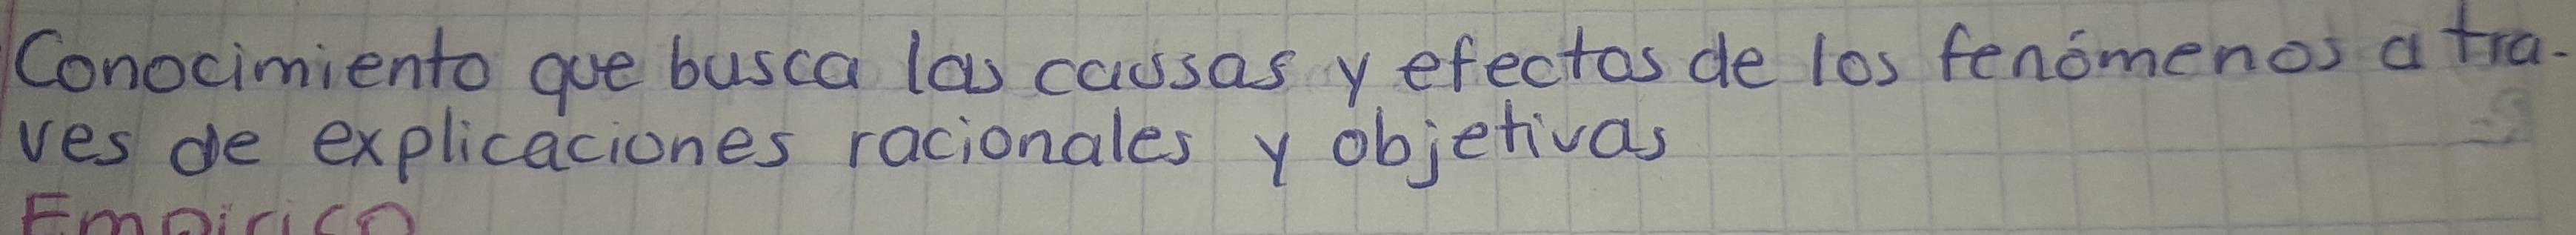 Conocimiento que busca las caussas y efectos de los fenómenos a tra-
ves de explicaciones racionales y objetivas
Empirico